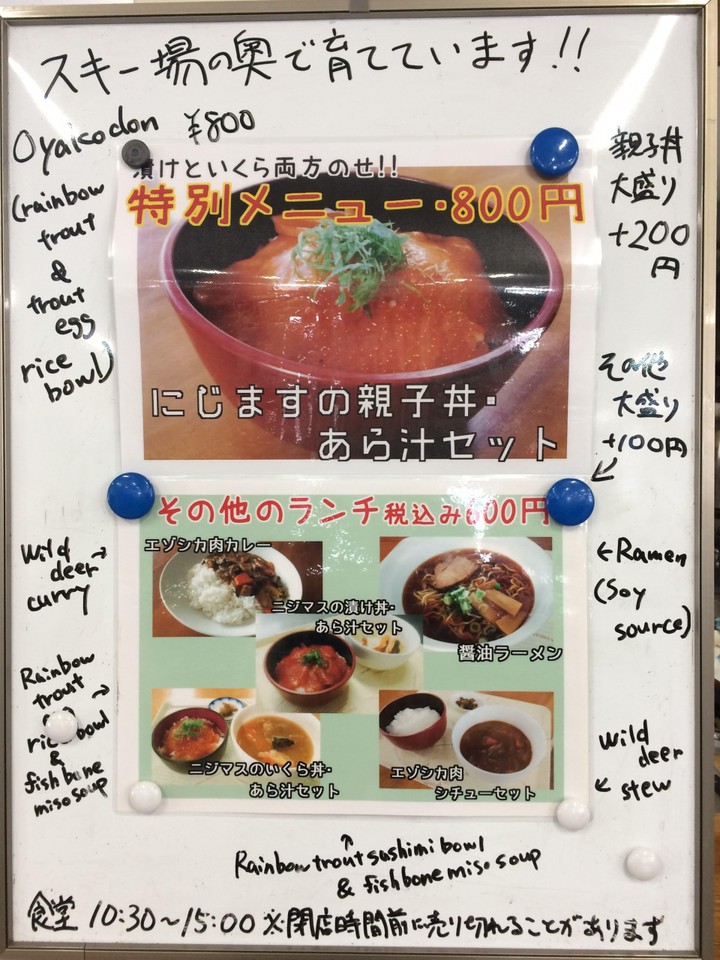 スキー場の奥で育てています!!
Oyakodon ¥800
(rainbow
trout
&
trout
egg
rice
bowl)
漬けといくら両方のせ!!
特別メニュー・800円
にじますの親子丼・
あら汁セット
親子丼
大盛り
+200
円
その他
大盛り
+100円
その他のランチ税込み600円
エゾシカ肉カレー
ニジマスの漬け丼・
あら汁セット
醤油ラーメン
ニジマスのいくら丼・
あら汁セット
エゾシカ肉
シチューセット
Wild →
deer
curry
Rainbow
trout →
rice bowl
&
fish bone
miso soup
←Ramen
(Soy
source)
Wild
deer
← stew
↑
Rainbow trout sashimi bowl
& fish bone miso soup
食堂 10:30~15:00 ※閉店時間前に売り切れることがあります